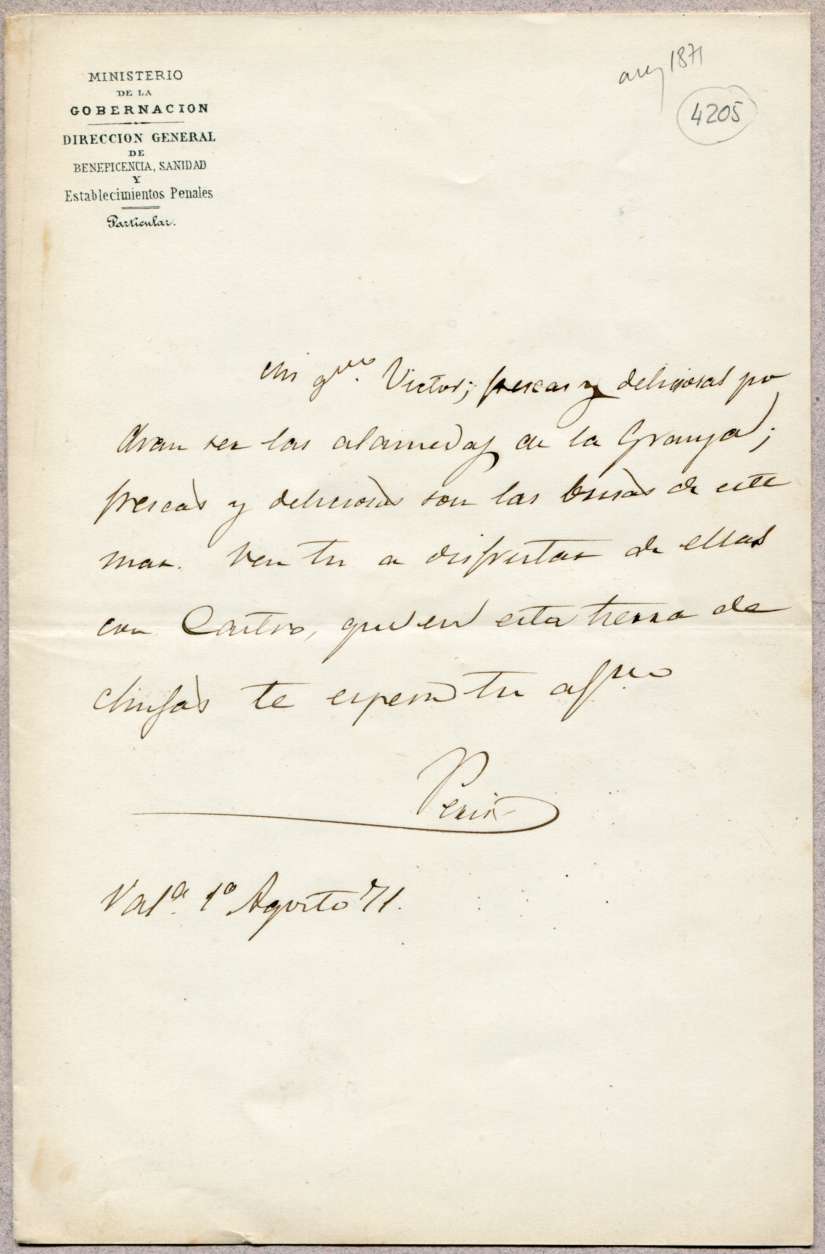 MINISTERIO
DE LA
GOBERNACION
DIRECCION GENERAL
DE
BENEFICENCIA, SANIDAD
Y
Establecimientos Penales
Particular.
1871
4205
Mi qdo. Victor; frescas y deliciosas po
dran ser las alamedas de la Granja;
frescas y deliciosas son las brisas de este
mar. Ven tu a disfrutar de ellas
con Castro, que en esta tierra de
chufas te espera tu afmo
Peris
Vala. 1º Agosto 71.